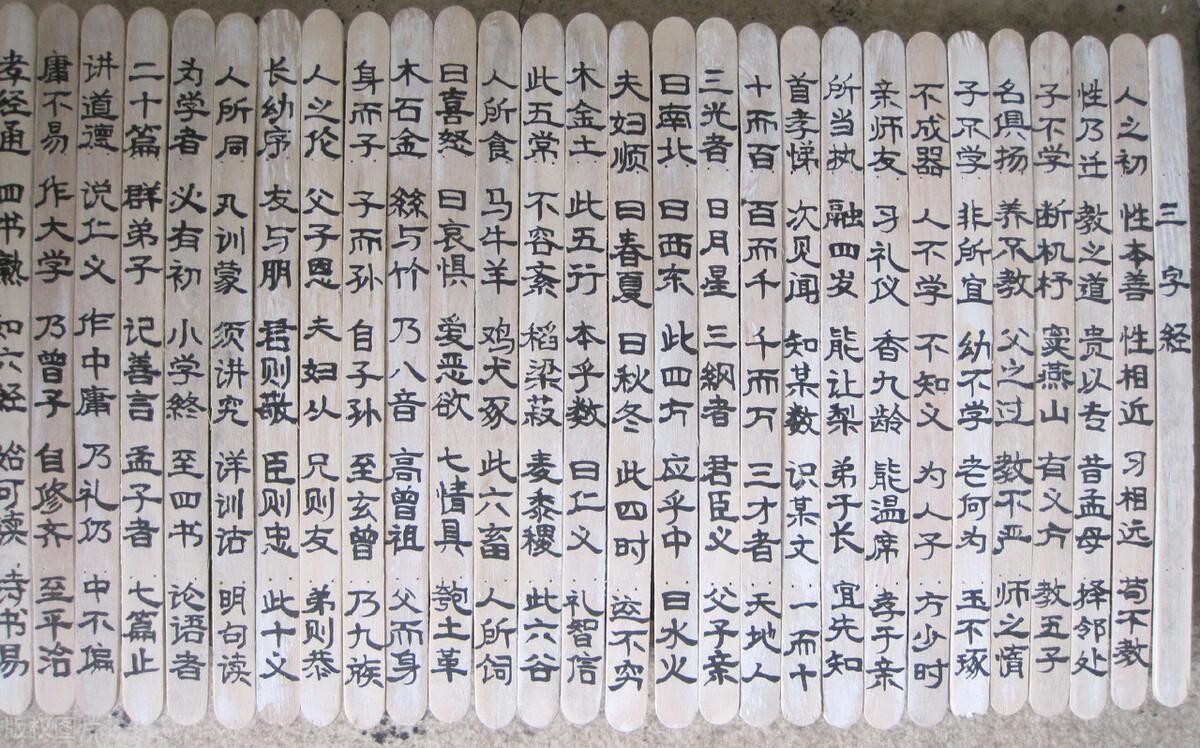 三字经
人之初 性本善 性相近 习相远 苟不教
性乃迁 教之道 贵以专 昔孟母 择邻处
子不学 断机杼 窦燕山 有义方 教五子
名俱扬 养不教 父之过 教不严 师之惰
子不学 非所宜 幼不学 老何为 玉不琢
不成器 人不学 不知义 为人子 方少时
亲师友 习礼仪 香九龄 能温席 孝于亲
所当执 融四岁 能让梨 弟于长 宜先知
首孝悌 次见闻 知某数 识某文 一而十
十而百 百而千 千而万 三才者 天地人
三光者 日月星 三纲者 君臣义 父子亲
曰南北 曰西东 此四方 应乎中 曰水火
夫妇顺 曰春夏 曰秋冬 此四时 运不穷
木金土 此五行 本乎数 曰仁义 礼智信
此五常 不容紊 稻粱菽 麦黍稷 此六谷
人所食 马牛羊 鸡犬豕 此六畜 人所饲
曰喜怒 曰哀惧 爱恶欲 七情具 匏土革
木石金 絲与竹 乃八音 高曾祖 父而身
身而子 子而孙 自子孙 至玄曾 乃九族
人之伦 父子恩 夫妇从 兄则友 弟则恭
长幼序 友与朋 君则敬 臣则忠 此十义
人所同 凡训蒙 须讲究 详训诂 明句读
为学者 必有初 小学终 至四书 论语者
二十篇 群弟子 记善言 孟子者 七篇止
讲道德 说仁义 作中庸 乃礼仍 中不偏
庸不易 作大学 乃曾子 自修齐 至平治
孝经通 四书熟 如六经 始可读 诗书易
版权图片